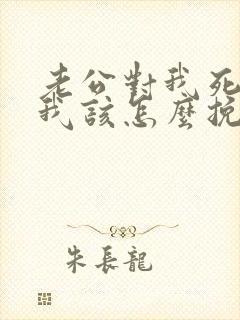 老公對我死
我該怎麼挽
朱長龍